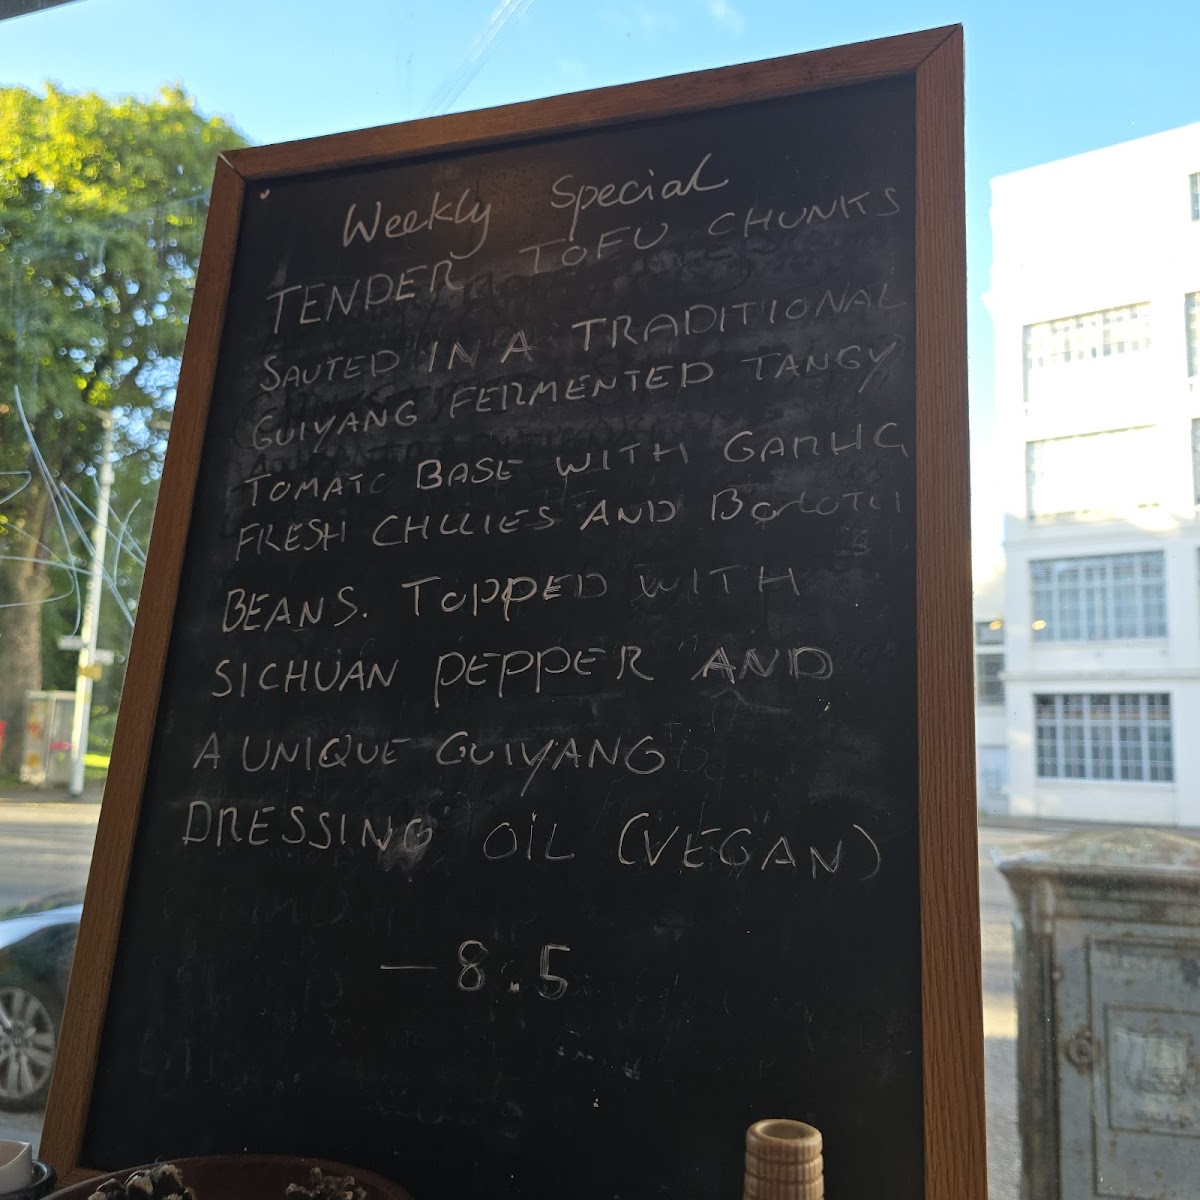 Weekly Special
TENDER TOFU CHUNKS
SAUTED IN A TRADITIONAL
GUIYANG FERMENTED TANGY
TOMATO BASE WITH GARLIC
FRESH CHILIES AND Borlotti
BEANS. TOPPED WITH
SICHUAN PEPPER AND
A UNIQUE GUIYANG
DRESSING OIL (VEGAN)
- 8.5